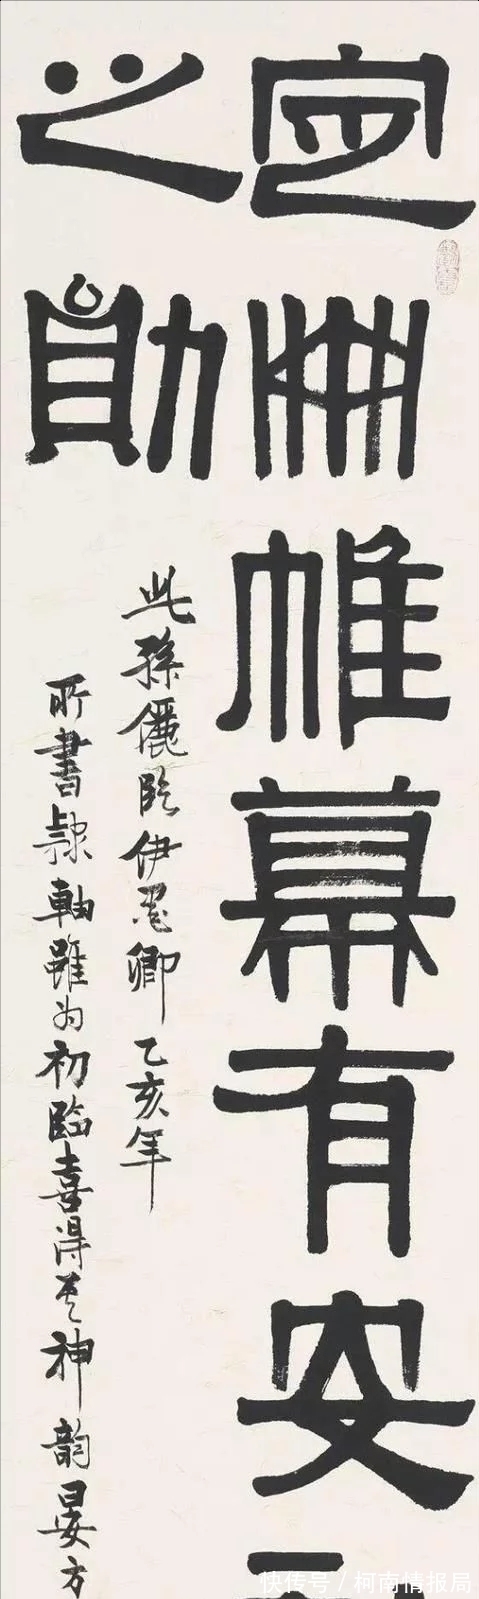 定冊帷幕有安
之勛
此孫儷臨伊墨卿乙亥年
所書隸軸雖为初臨喜得其神韵晏方
快传号/柯南情报局